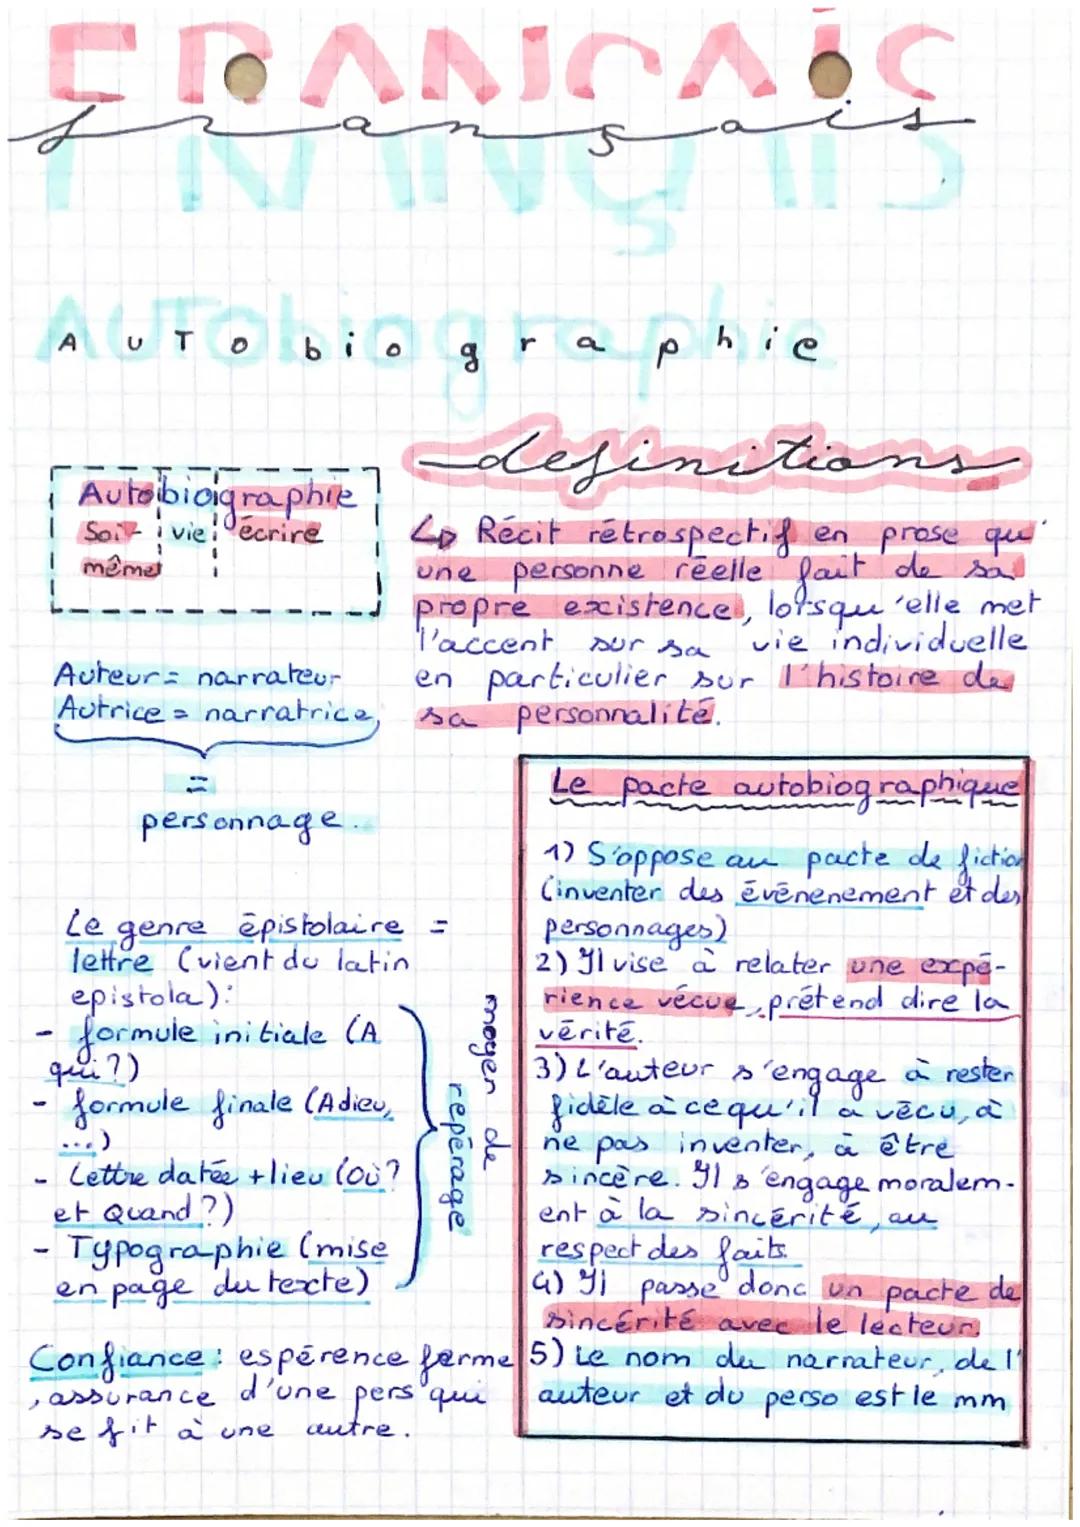 FRANÇAIS
français
FRANÇAIS
AUTobiographie
AUTobiographie
definitions
Autobiographie
Soi- vie écrire
même
↳ Récit rétrospectif en prose qu'
une personne réelle fait de sa
propre existence, lorsqu'elle met
l'accent sur sa vie individuelle
en particulier sur l'histoire de
sa personnalité.
Auteur = narrateur
Autrice = narratrice
=
personnage.
Le genre épistolaire =
lettre (vient du latin
epistola):
- formule initiale (A
qui?)
- formule finale (Adieu,
...)
- Lettre datée + lieu (Où?
et Quand?)
- Typographie (mise
en page du texte)
moyen de
repérage
Confiance : espérence ferme
, assurance d'une pers qui
se fit à une autre.
Le pacte autobiographique
1) S'oppose au pacte de fiction
(inventer des événenement et des
personnages)
2) Il vise à relater une expé-
rience vécue, prétend dire la
vérité.
3) L'auteur s'engage à rester
fidèle à ce qu'il a vécu, à
ne pas inventer, à être
sincère. Il s'engage moralem-
ent à la sincérité, au
respect des faits.
4) Il passe donc un pacte de
sincérité avec le lecteur.
5) Le nom du narrateur, de l'
auteur et du perso est le mm